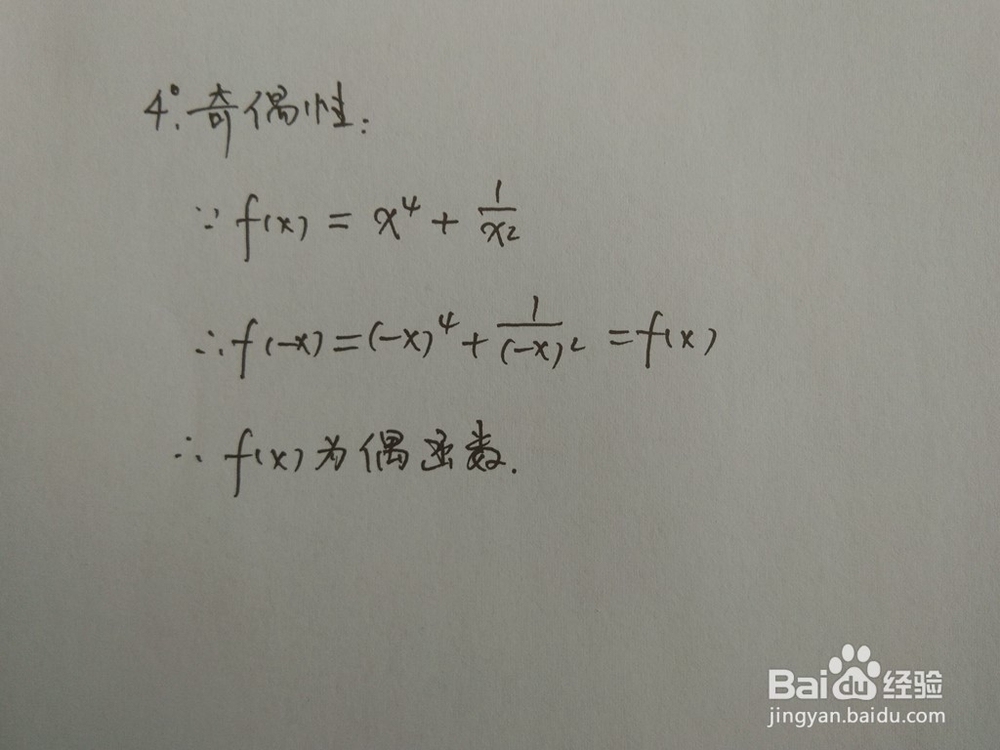 4°. 奇偶性:
∵ f(x) = x⁴ + 1/x²
∴ f(-x) = (-x)⁴ + 1/(-x)² = f(x)
∴ f(x) 为偶函数.
Baidu 经验
jingyan.baidu.com